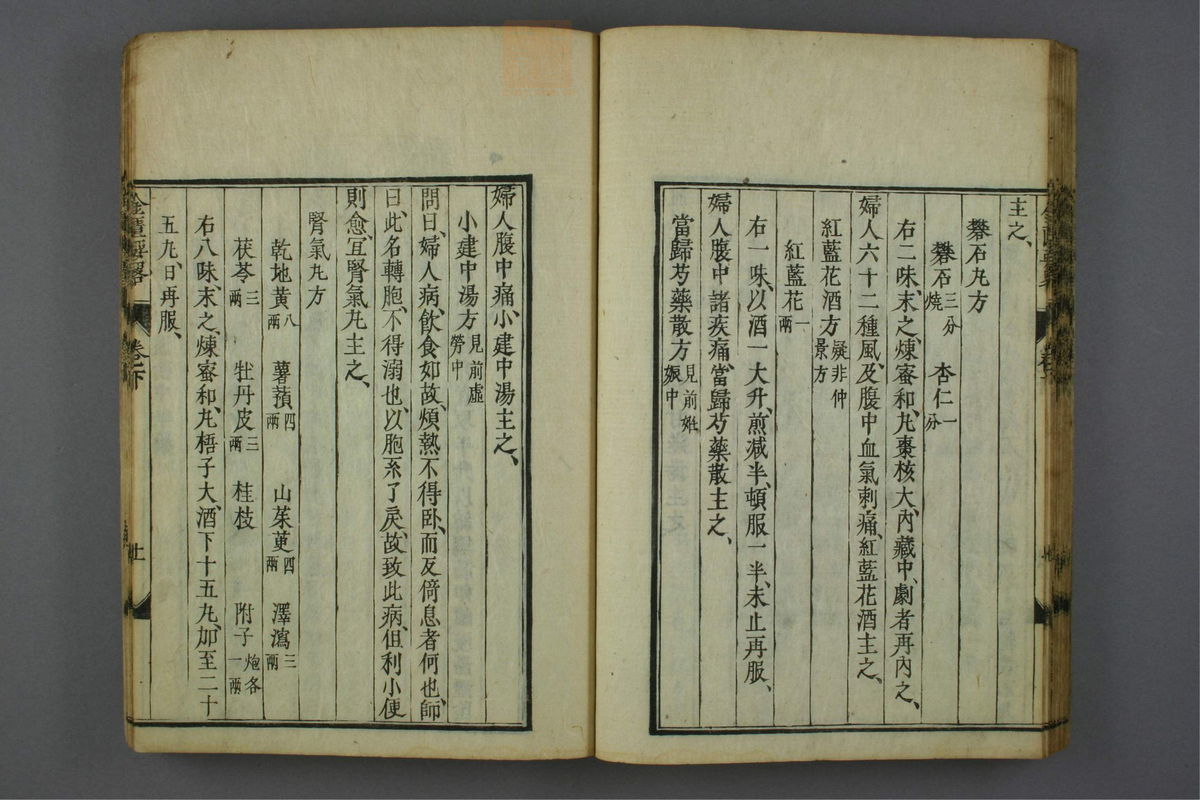 主之、
礬石丸方
礬石三分燒　杏仁一分
右二味、末之、煉蜜和、丸棗核大、內藏中、劇者再內之、
婦人六十二種風、及腹中血氣刺痛、紅藍花酒主之、
紅藍花酒方疑非仲景方
紅藍花一兩
右一味、以酒一大升、煎減半、頓服一半、未止再服、
婦人腹中諸疾痛、當歸芍藥散主之、
當歸芍藥散方見前姙娠中
婦人腹中痛、小建中湯主之、
小建中湯方見前虛勞中
問曰、婦人病、飲食如故、煩熱不得臥、而反倚息者何也、師
曰、此名轉胞、不得溺也、以胞系了戾、故致此病、但利小便
則愈、宜腎氣丸主之、
腎氣丸方
乾地黃八兩　薯蕷四兩　山茱萸四兩　澤瀉三兩
茯苓三兩　牡丹皮三兩　桂枝　附子炮各一兩
右八味、末之、煉蜜和、丸梧子大、酒下十五丸、加至二十
五丸、日再服、
金匱要略　卷下